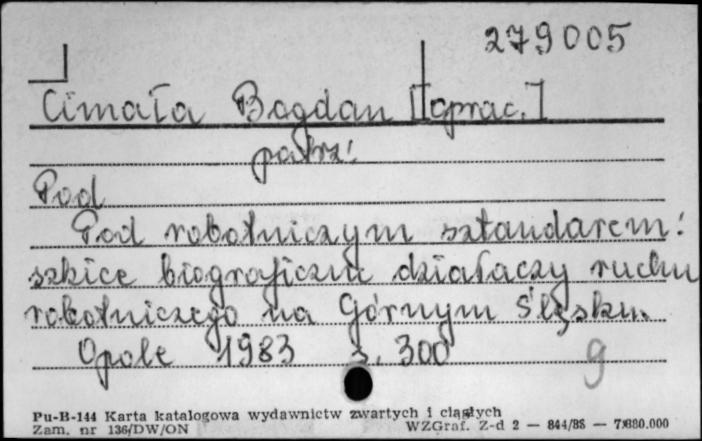 279005
Cimała Bogdan [oprac.]
patrz:
Pod
Pod robotniczym sztandarem:
szkice biograficzne działaczy ruchu
robotniczego na Górnym Śląsku.
Opole 1983 s. 300
9
Pu-B-144 Karta katalogowa wydawnictw zwartych i ciągłych
Zam. nr 136/DW/ON WZGraf. Z-d 2 — 844/88 — 7.880.000